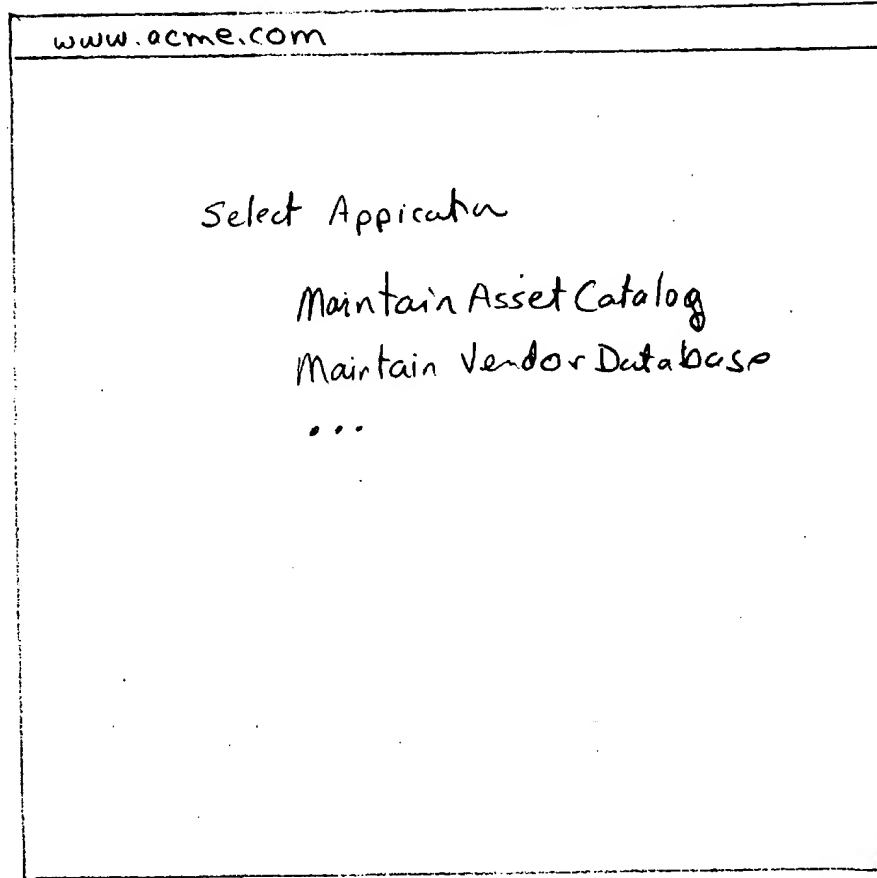 www.acme.com
Select Appicatin
Maintain Asset Catalog
Maintain Vendor Database
...